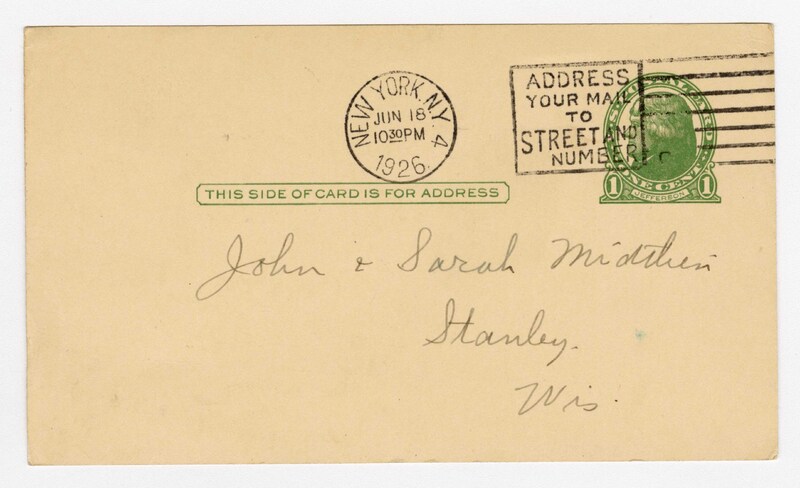 NEW YORK, N.Y. 4
JUN 18
10 30 PM
1926.
ADDRESS
YOUR MAIL
TO
STREET AND
NUMBER
1 ONE CENT 1
JEFFERSON
THIS SIDE OF CARD IS FOR ADDRESS
John & Sarah Midthien
Stanley.
Wis.